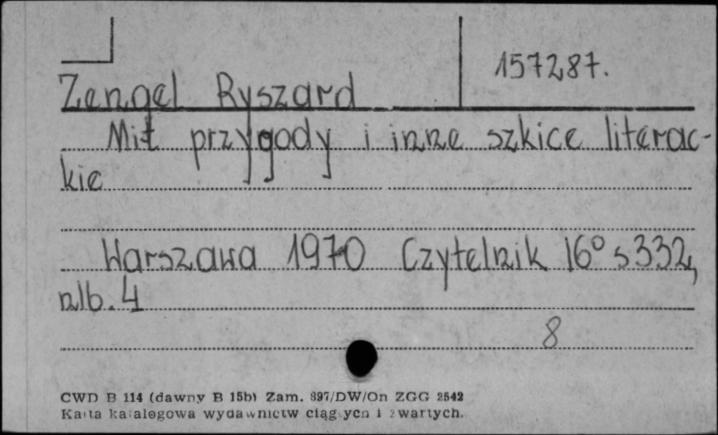 157287.
Zengel Ryszard
Mit przygody i inne szkice literac-
kie
Warszawa 1970 Czytelnik 16° s 332,
nlb. 4
8
CWD B 114 (dawny B 15b) Zam. 897/DW/On ZGG 2542
Karta katalogowa wydawnictw ciągłych i zwartych.